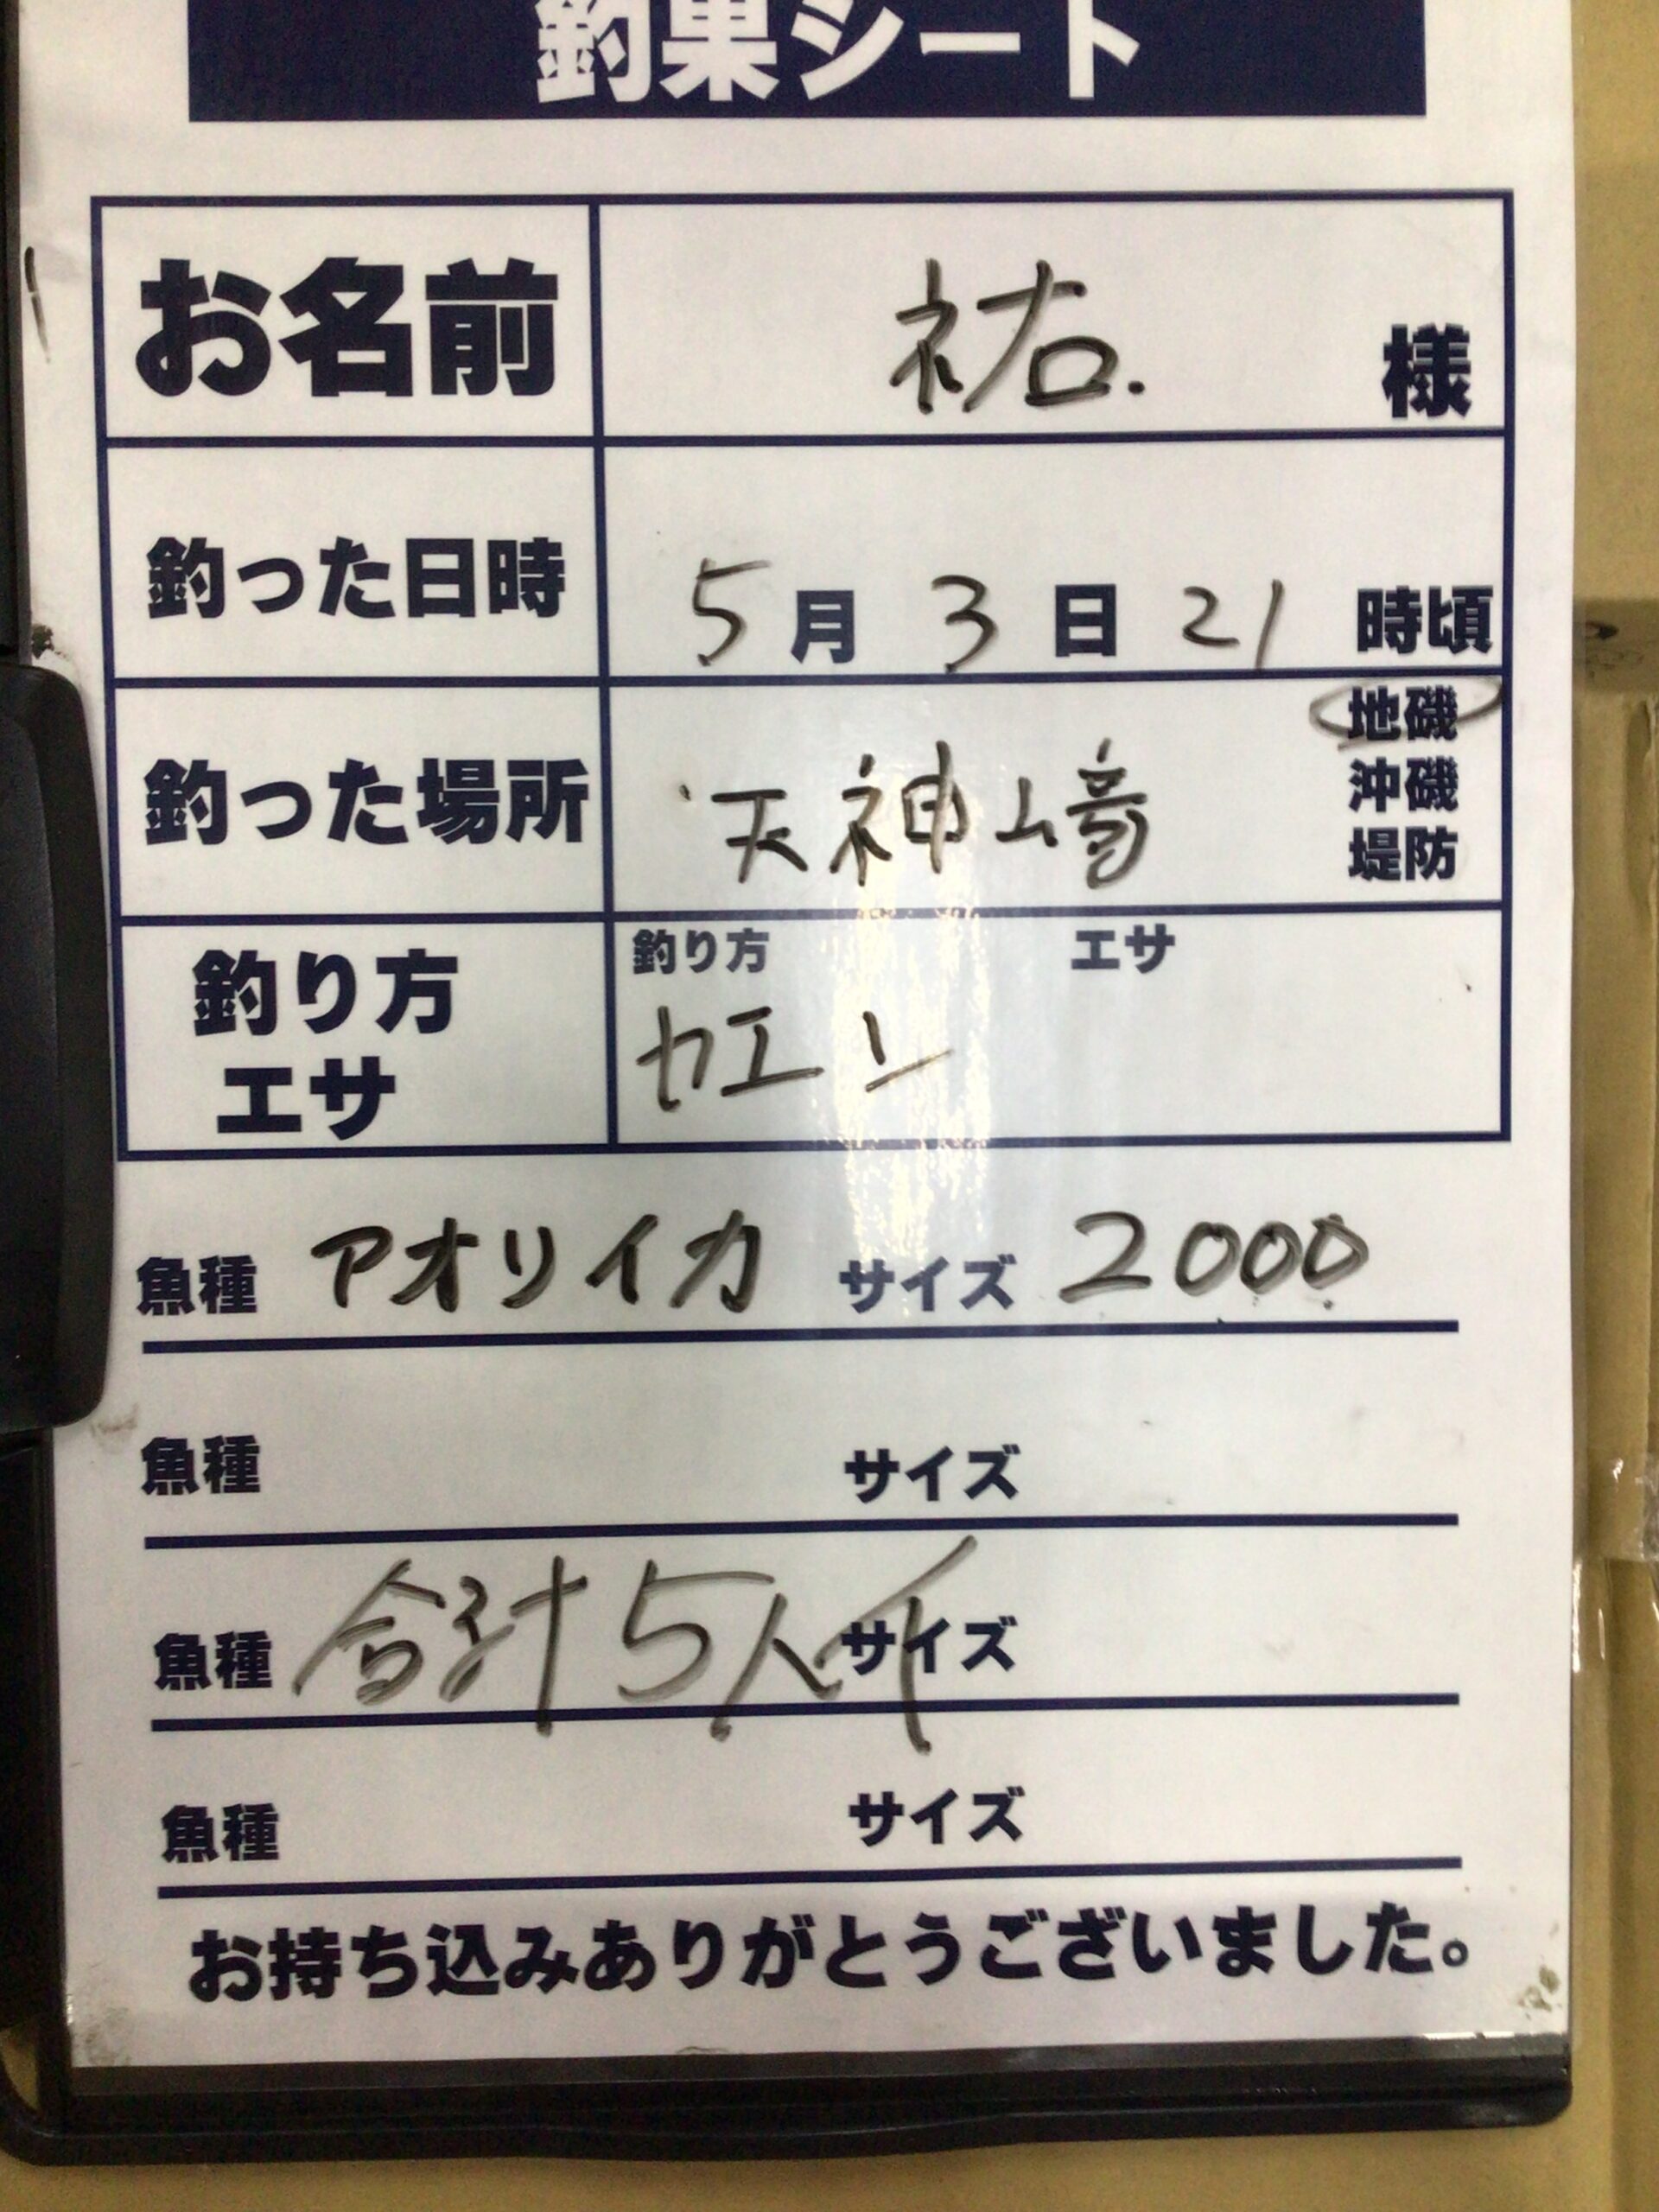 釣果シート
お名前 祐. 様
釣った日時 5月3日21時頃
釣った場所 天神﨑 地磯
沖磯
堤防
釣り方 エサ
釣り方 エサ カエン
魚種 アオリイカ サイズ 2000
魚種 サイズ
魚種 合計5人 サイズ
魚種 サイズ
お持ち込みありがとうございました。